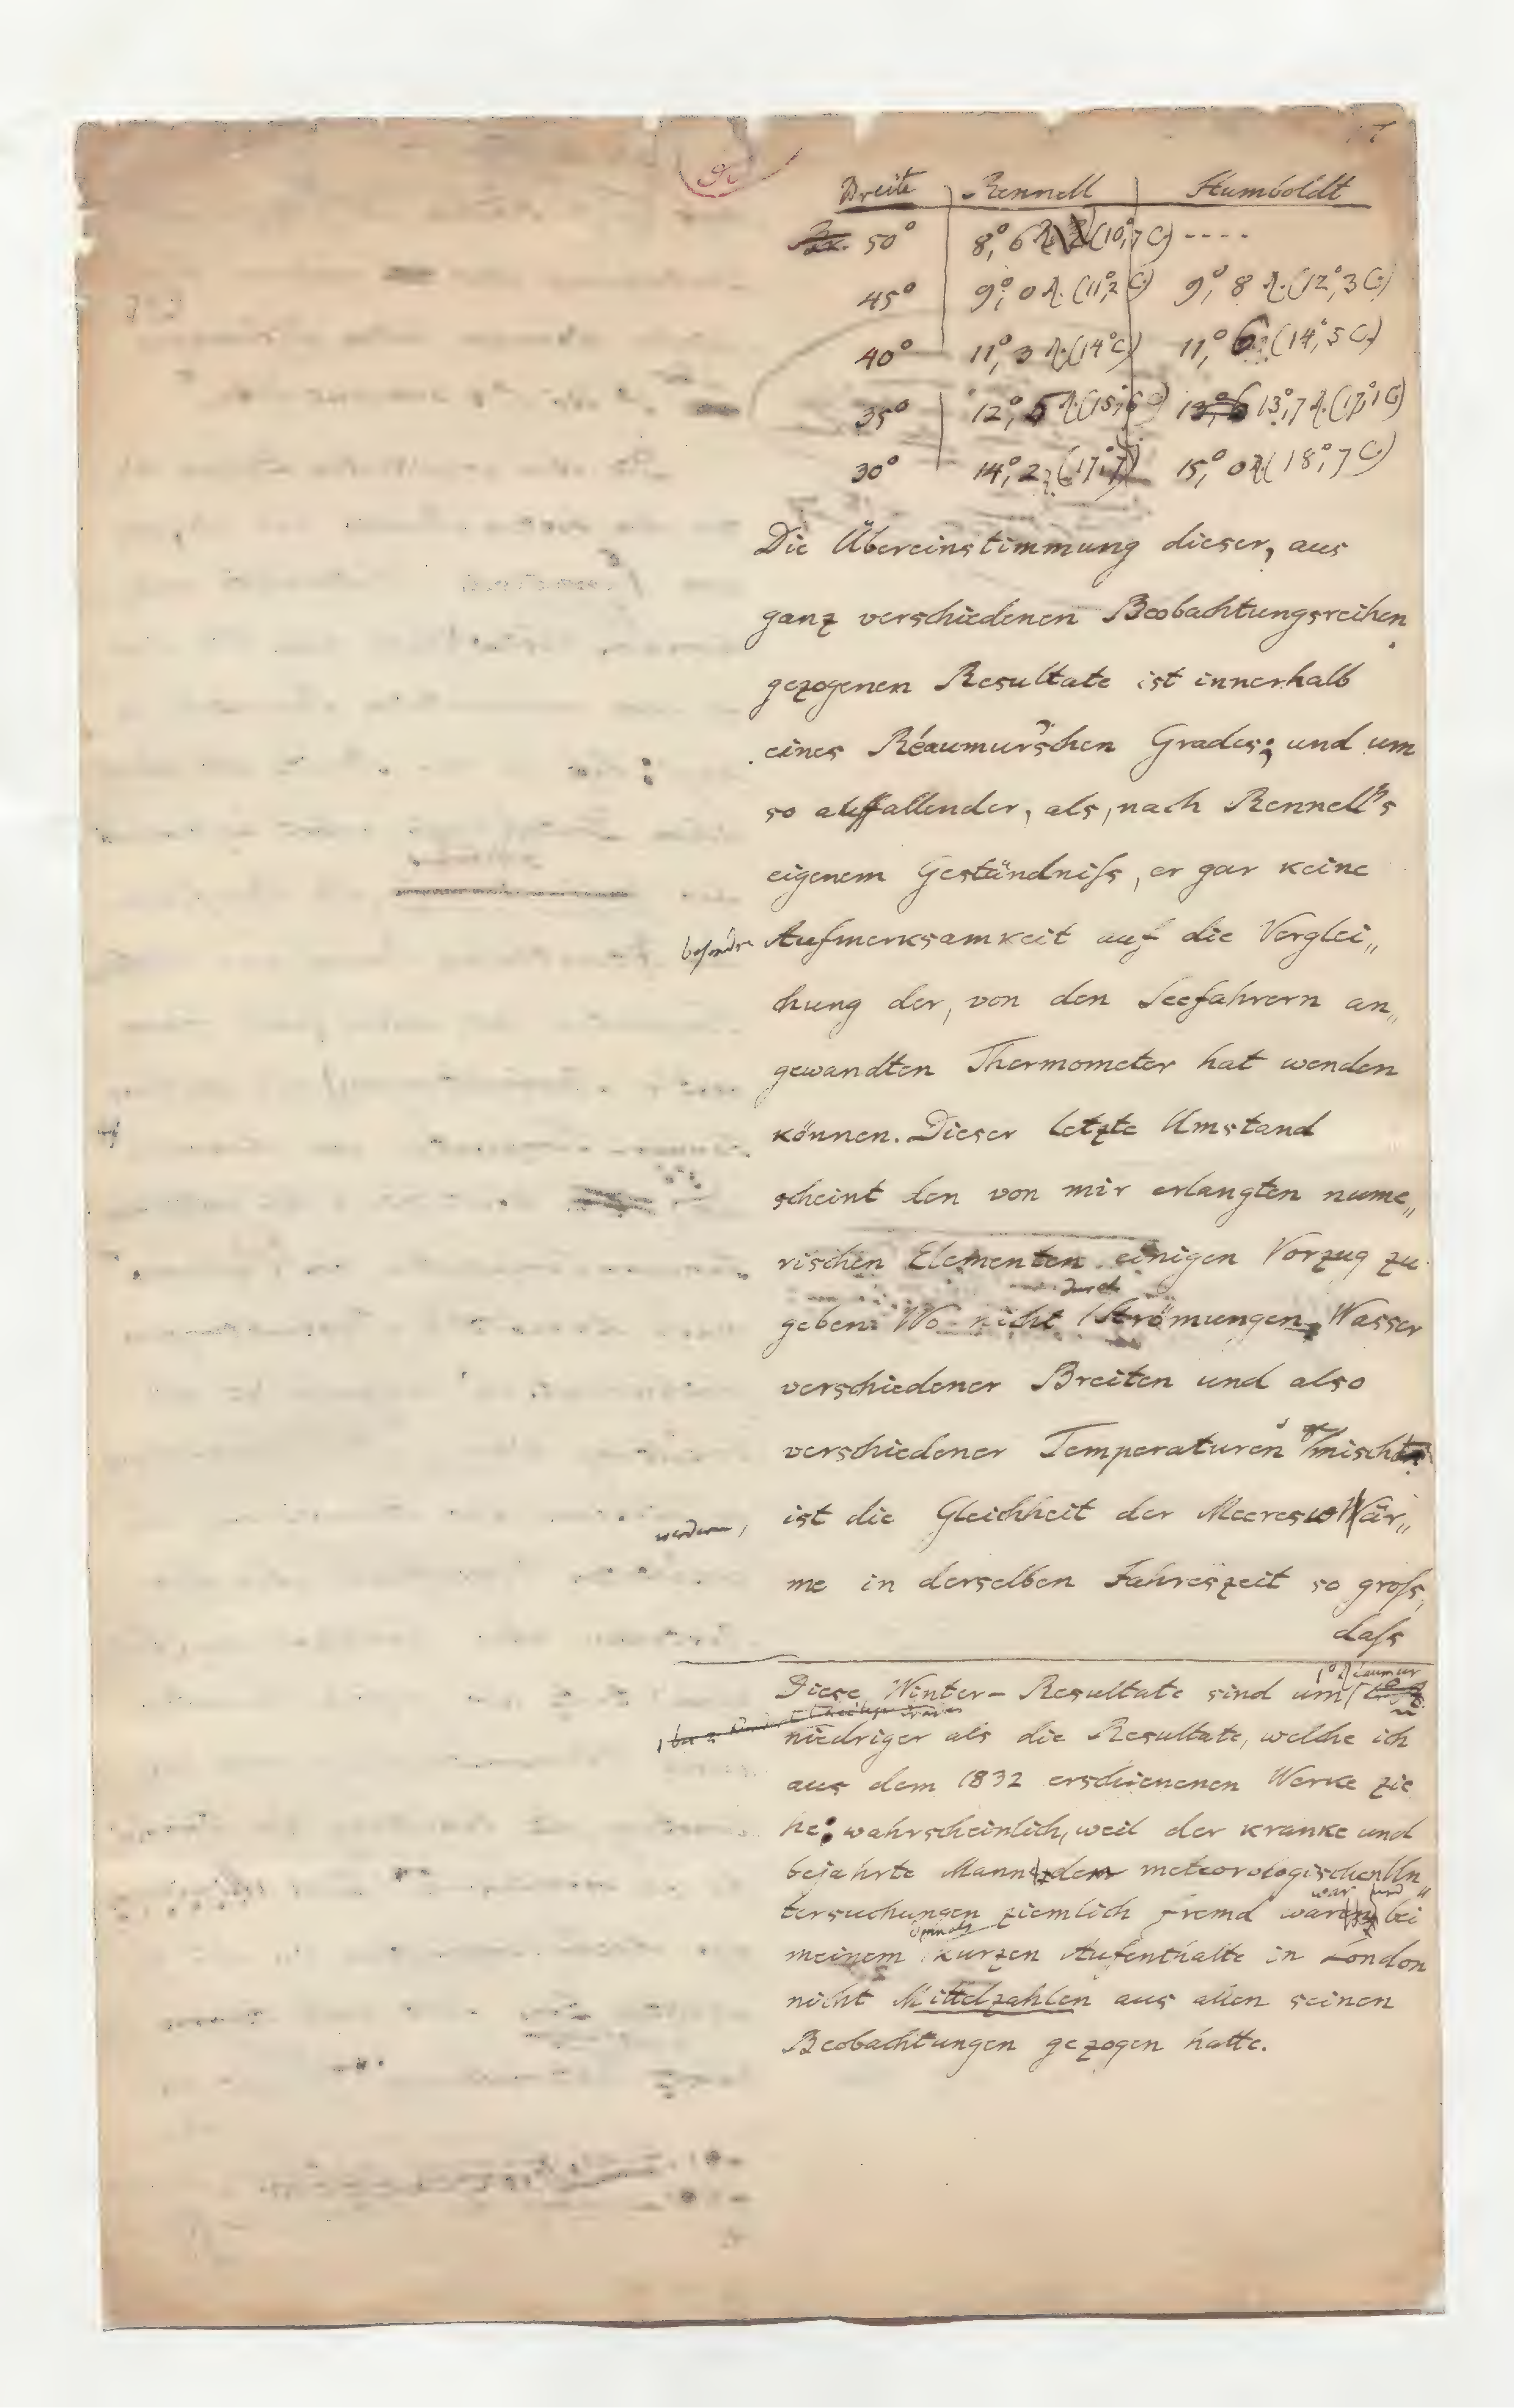 Breite Rennell Humboldt
50° 8,°6 R. (10,°7 C.) ----
45° 9,°0 R. (11,°2 C.) 9,°8 R. (12,°3 C.)
40° 11,°3 R. (14° C.) 11,°6 R. (14,°5 C.)
35° 12,°5 R. (15,°6 C.) 13,°6 13,°7 R. (17,°1 C.)
30° 14,°2 R. (17,°7) 15,°0 R. (18,°7 C.)
Die Übereinstimmung dieser, aus
ganz verschiedenen Beobachtungsreihen
gezogenen Resultate ist innerhalb
eines Réaumur'schen Grades; und um
so auffallender, als, nach Rennell's
eigenem Geständniſs, er gar keine
besondre Aufmerksamkeit auf die Verglei„
chung der, von den Seefahrern an„
gewandten Thermometer hat wenden
können. Dieser letzte Umstand
scheint den von mir erlangten nume„
rischen Elementen einigen Vorzug zu
durch
geben. Wo nicht Strömungen Wasser
verschiedener Breiten und also
verschiedener Temperaturen gemischt
werden, ist die Gleichheit der Meereswär„
me in derselben Jahreszeit so groſs,
daſs
1° Réaumur
Diese Winter-Resultate sind um
niedriger als die Resultate, welche ich
aus dem 1832 erschienenen Werke zie
he; wahrscheinlich, weil der kranke und
bejahrte Mann dem meteorologischen Un„
war und
tersuchungen ziemlich fremd bei
damals
meinem kurzen Aufenthalte in London
nicht Mittelzahlen aus allen seinen
Beobachtungen gezogen hatte.